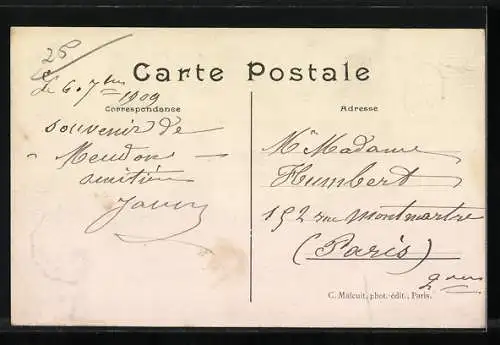 25
le 6. 7bre 1909
Carte Postale
Correspondance
Adresse
souvenir de
- Meudon -
amitiés
Mr Madame
Humbert
152 rue Montmartre
(Paris)
C. Malcuit, phot.-édit., Paris.